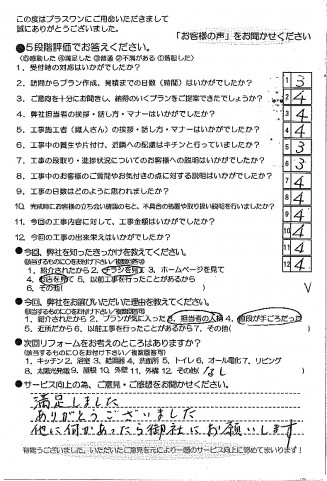 この度はプラスワンにご用命いただきまして
誠にありがとうございました。
「お客様の声」をお聞かせください
●5段階評価でお答えください。
(⑤感動した ④満足した ③普通 ②不満がある ①落胆した)
1. 受付時の対応はいかがでしたか?
2. 訪問からプラン作成、見積までの日数(時間)はいかがでしたか?
3. ご意向を十分にお聞きし、納得のいくプランをご提案できたでしょうか?
4. 弊社担当者の挨拶・話し方・マナーはいかがですか?
5. 工事施工者(職人さん)の挨拶・話し方・マナーはいかがですか?
6. 工事中の養生や片付け、近隣への配慮はキチンと行っていましたか?
7. 工事の段取り・進捗状況についてのお客様への説明はいかがでしたか?
8. 工事中のお客様のご質問やお気付きの点に対する説明はいかがでしたか?
9. 工事の日数はどのように思われましたか?
10. 完成時にお客様の立ち会い確認のもと、不具合の処置や取り扱い説明を行いましたか?
11. 今回の工事内容に対して、工事金額はいかがでしたか?
12. 今回の工事の出来栄えはいかがでしたか?
1 3
2 4
3 4
4 4
5 3
6 3
7 4
8 4
9 4
10 4
11 4
12 4
●今回、弊社を知ったきっかけを教えてください。
(該当するものに○をお付け下さい/複数回答可)
1. 紹介されたから 2. チラシを見て 3. ホームページを見て
4. 看板を見て 5. 以前工事を行ったことがあるから
6. その他(
●今回、弊社をお選びいただいた理由を教えてください。
(該当するものに○をお付け下さい/複数回答可)
1. 紹介されたから 2. プランが気に入った 3. 担当者の人柄 4. 値段が手ごろだった
5. 近所だから 6. 以前工事を行ったことがあるから 7. その他(
●次回リフォームをお考えのところはありますか?
(該当するものに○をお付け下さい/複数回答可)
1. キッチン 2. 浴室 3. 給湯器 4. 洗面所 5. トイレ 6. オール電化 7. リビング
8. 太陽光発電 9. 屋根 10. 外壁 11. 外構 12. その他( なし )
●サービス向上の為、ご意見・ご感想をお聞かせください。
満足しました
ありがとうございました
他に何かあったら御社にお願いします
有難うございました。いただいたご意見を元により一層のサービス向上に努めてまいります!